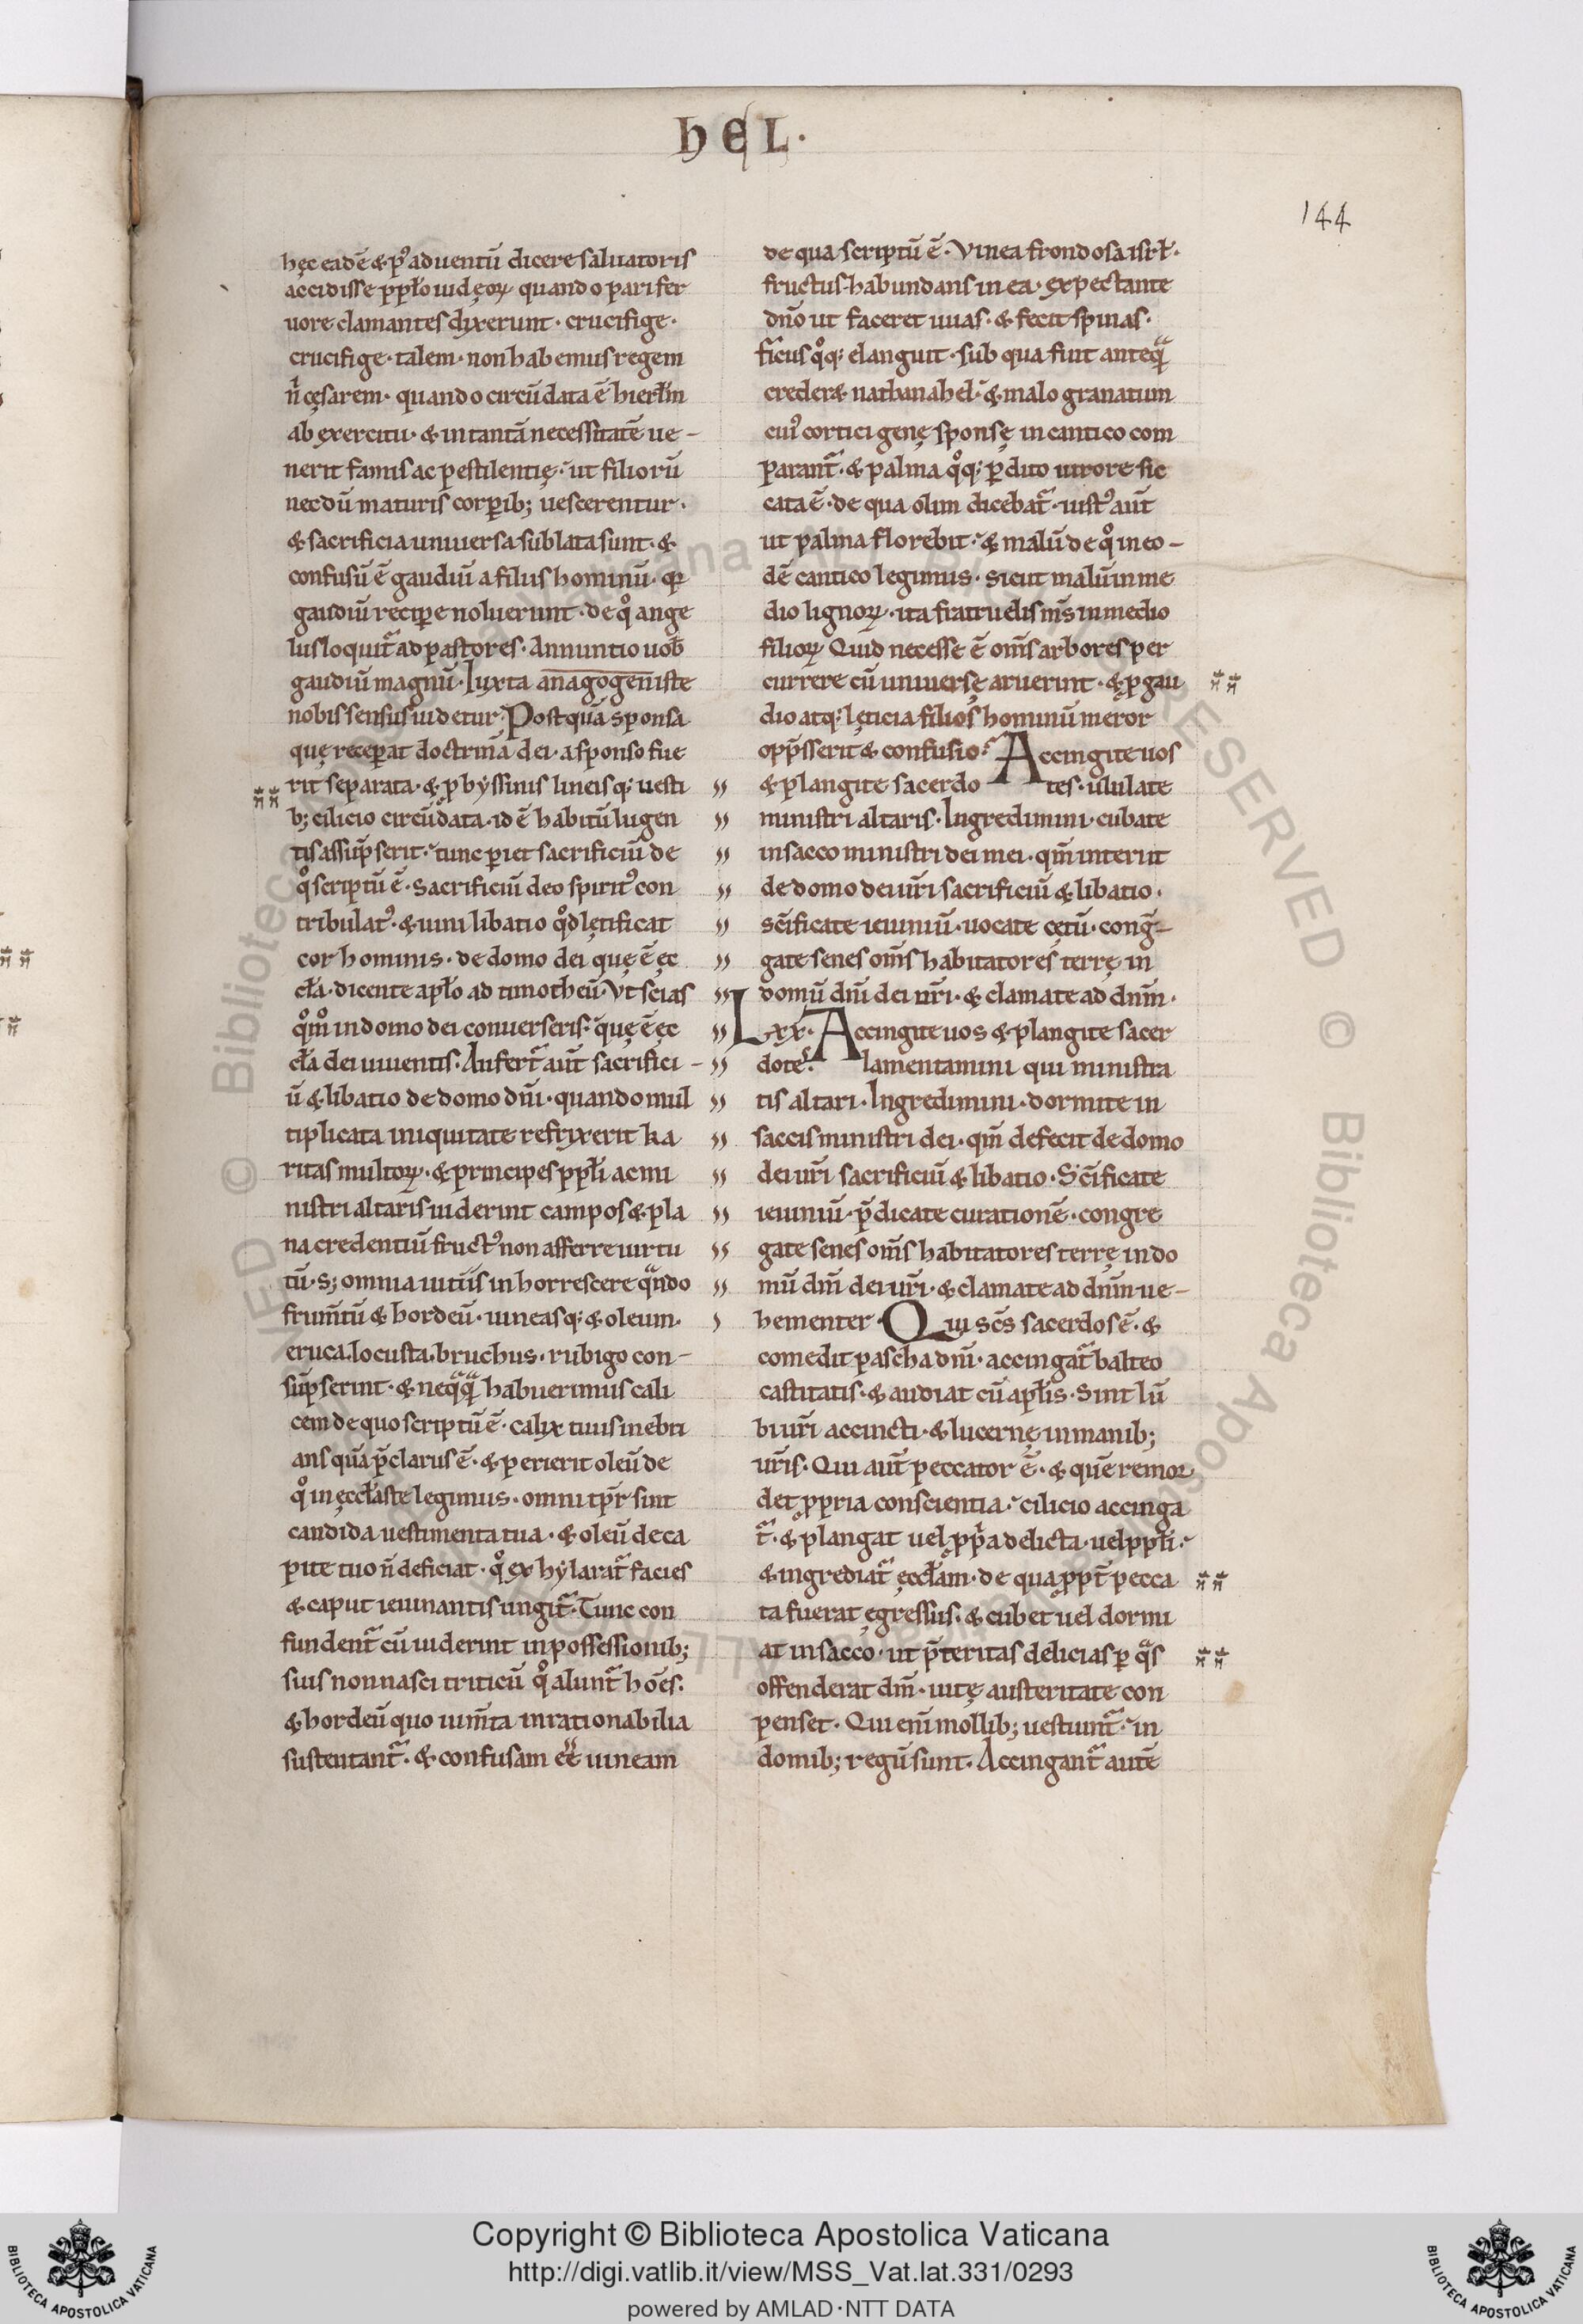 hEL·
144
hęc eadē & p᷒ aduentū dicere saluatoris
accidisse ppło iudęoꝝ quando pari fer
uore clamantes dixerunt· crucifige·
crucifige· talem· non habemus regem
n̄ cęsarem· quando circūdata ē hierłm
ab exercitu· & in tantā necessitatē ue-
nerit famis ac pestilentię· ut filiorū
necdū maturis corꝑib; uescerentur·
& sacrificia uniuersa sublata sunt· &
confusū ē gaudiū a filiis hominū· q̄
gaudiū reciꝑe noluerunt· de qͦ ange
lus loquit᷑ ad pastores· Annuntio uob̄
gaudiū magnū· Iuxta anagogen iste
nobis sensus uidetur· Postquā sponsa
quę receꝑat doctrinā dei· a sponso fue
rit separata· & ꝓ byssinis lineisq; uesti
b; cilicio circūdata· id ē habitū lugen
tis assūpserit· tunc ꝑiet sacrificiū de
qͦ scriptū ē· Sacrificiū deo spirit᷒ con
tribulat᷒· & uini libatio qͦd lętificat
cor hominis· de domo dei quę ē ęc
cła· dicente apło ad timotheū· Ut scias
qͦm̊ in domo dei conuerseris· quę ē ęc
cła dei uiuentis· Aufert᷑ aut̄ sacrifici-
ū & libatio de domo dn̄i· quando mul
tiplicata iniquitate refrixerit ka
ritas multoꝝ· & principes ppłi ac mi
nistri altaris uiderint campos & pla
na credentiū fruct᷒ non afferre uirtu
tū· s; omnia uitiis inhorrescere qᷓndo
frum̄tū & hordeū· uineasq; & oleum·
eruca· locusta· bruchus· rubigo con-
sūpserint· & neqᷓqᷓ habuerimus cali
cem de quo scriptū ē· calix tuus inebri
ans quā p̄clarus ē· & perierit oleū de
qͦ in ęccłaste legimus· omni tp̄r sint
candida uestimenta tua· & oleū de ca
pite tuo n̄ deficiat· qͦ exhylarat᷑ facies
& caput ieiunantis ungit᷑· Tunc con
fundent᷑ cū uiderint in possessionib;
suis non nasci triticū qͦ alunt᷑ hōēs·
& hordeū quo ium̄ta inrationabilia
sustentant᷑· & confusam eē̄ uineam
de qua scriptū ē· Vinea frondosa isrł·
fructus habundans in ea· expectante
dn̄o ut faceret uuas· & fecit spinas·
ficus qͦq; elanguit· sub qua fuit anteqᷓ
crederæ nathanahel· & malogranatum
cui᷒ cortici genę sponsę in cantico com
parant᷑· & palma qͦq; ꝑdito uirore sic
cata ē· de qua olim dicebat᷑· iust᷒ aut̄
ut palma florebit· & malū de qͦ in eo-
dē cantico legimus· Sicut malū in me
dio lignoꝝ· ita fratruelis m̄s in medio
filioꝝ Quid necesse ē om̄s arbores per
currere cū uniuersę aruerint· & ꝓ gau
dio atq; lęticia filios hominū meror
opp̄sserit & confusio· Accingite uos
& plangite sacerdo tes· ululate
ministri altaris· Ingredimini· cubate
in sacco ministri dei mei· qm̄ interiit
de domo dei ur̄i sacrificiū & libatio·
sc̄ificate ieiuniū· uocate cętū· conḡ-
gate senes om̄s habitatores terrę in
domū dn̄i dei nr̄i· & clamate ad dn̄m·
Lxx· Accingite uos & plangite sacer
dotes· lamentamini qui ministra
tis altari· Ingredimini· dormite in
saccis ministri dei· qm̄ defecit de domo
dei ur̄i sacrificiū & libatio· Sc̄ificate
ieiuniū· p̄dicate curationē· congre
gate senes om̄s habitatores terrę in do
mū dn̄i dei ur̄i· & clamate ad dn̄m ue-
hementer· Qui sc̄s sacerdos ē· &
comedit pascha dn̄i· accingat᷑ balteo
castitatis· & audiat cū apłis· Sint lū
bi ur̄i accincti· & lucernę in manib;
ur̄is· Qui aut̄ peccator ē· & quē remor
det ꝓpria conscientia· cilicio accinga
t᷑· & plangat uel ꝓpa delicta· uel ppłi·
& ingrediat᷑ ęccłam· de qua ꝓpt̄ pecca
ta fuerat egressus· & cubet uel dormi
at in sacco· ut p̄teritas delicias ꝑ qᷓs
offenderat dm̄· uitę austeritate con
penset· Qui eni̅ mollib; uestiunt᷑· in
domib; regū sunt· Accingant᷑ autē
Copyright © Biblioteca Apostolica Vaticana
http://digi.vatlib.it/view/MSS_Vat.lat.331/0293
powered by AMLAD·NTT DATA
BIBLIOTECA APOSTOLICA VATICANA
BIBLIOTECA APOSTOLICA VATICANA